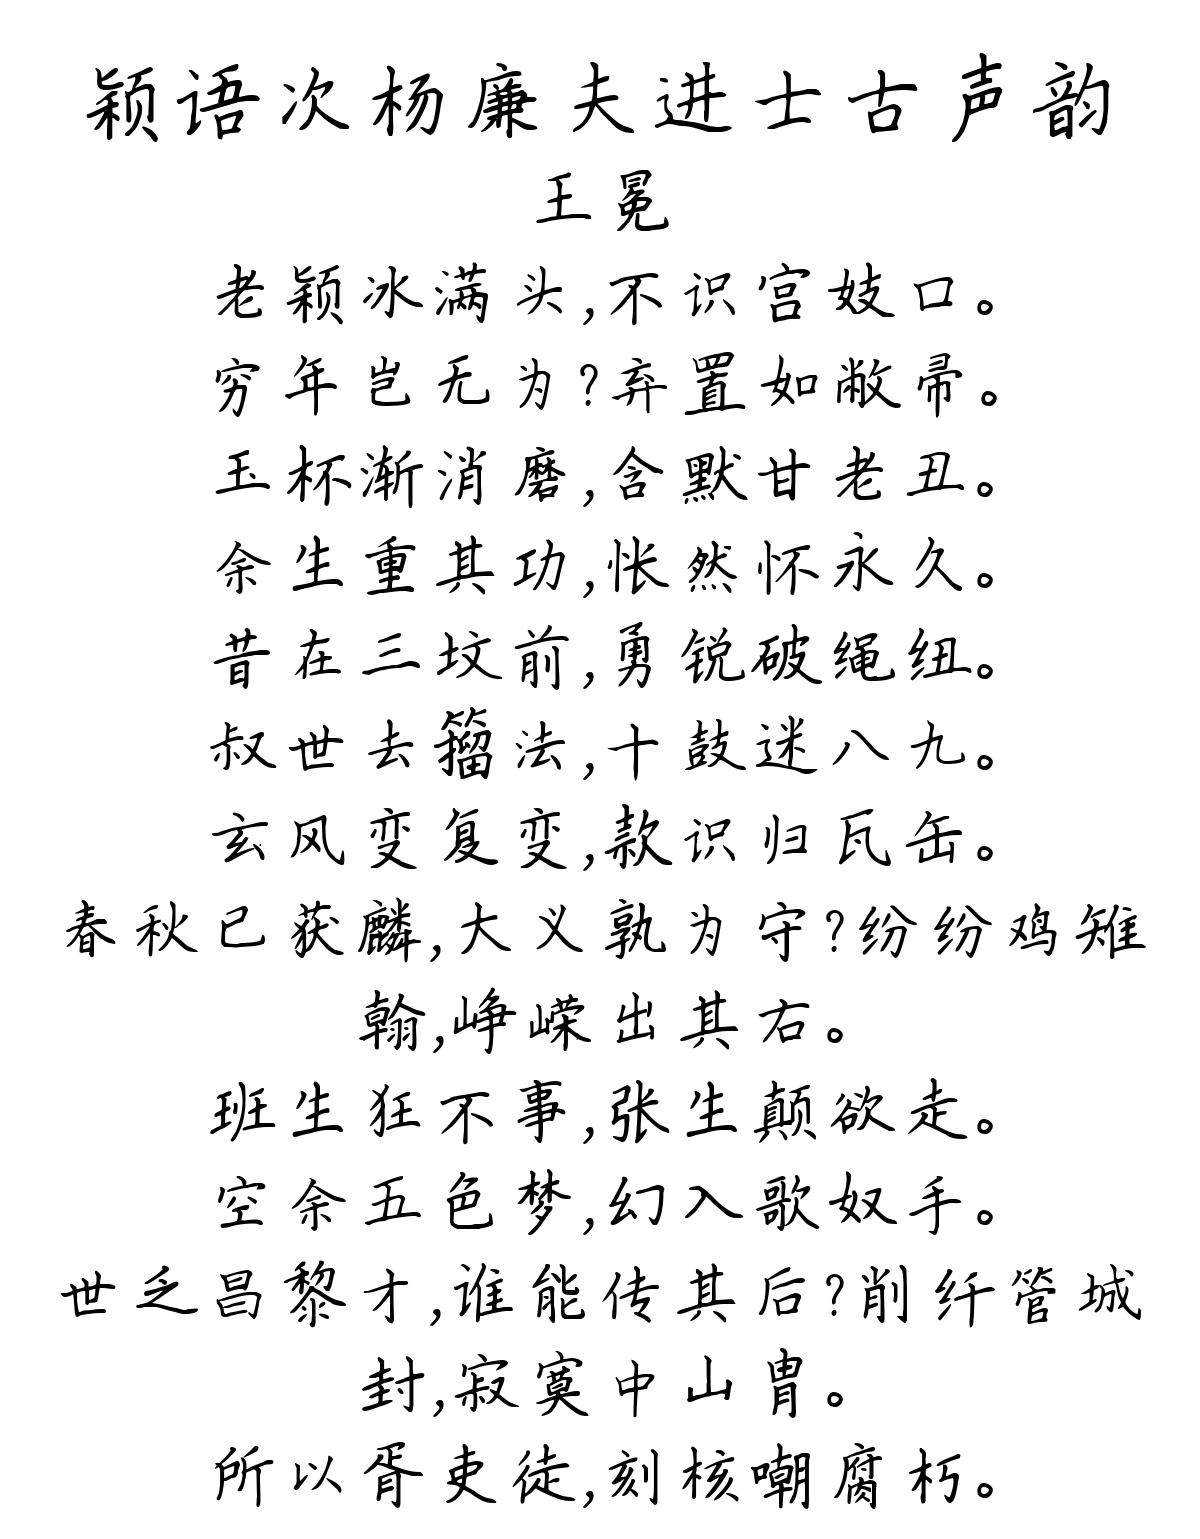 颖语次杨廉夫进士古声韵
王冕
老颖冰满头,不识宫妓口。
穷年岂无为?弃置如敝帚。
玉杯渐消磨,含默甘老丑。
余生重其功,怅然怀永久。
昔在三坟前,勇锐破绳纽。
叔世去籀法,十鼓迷八九。
玄风变复变,款识归瓦缶。
春秋已获麟,大义孰为守?纷纷鸡雉
翰,峥嵘出其右。
班生狂不事,张生颠欲走。
空余五色梦,幻入歌奴手。
世乏昌黎才,谁能传其后?削纤管城
封,寂寞中山胄。
所以胥吏徒,刻核嘲腐朽。